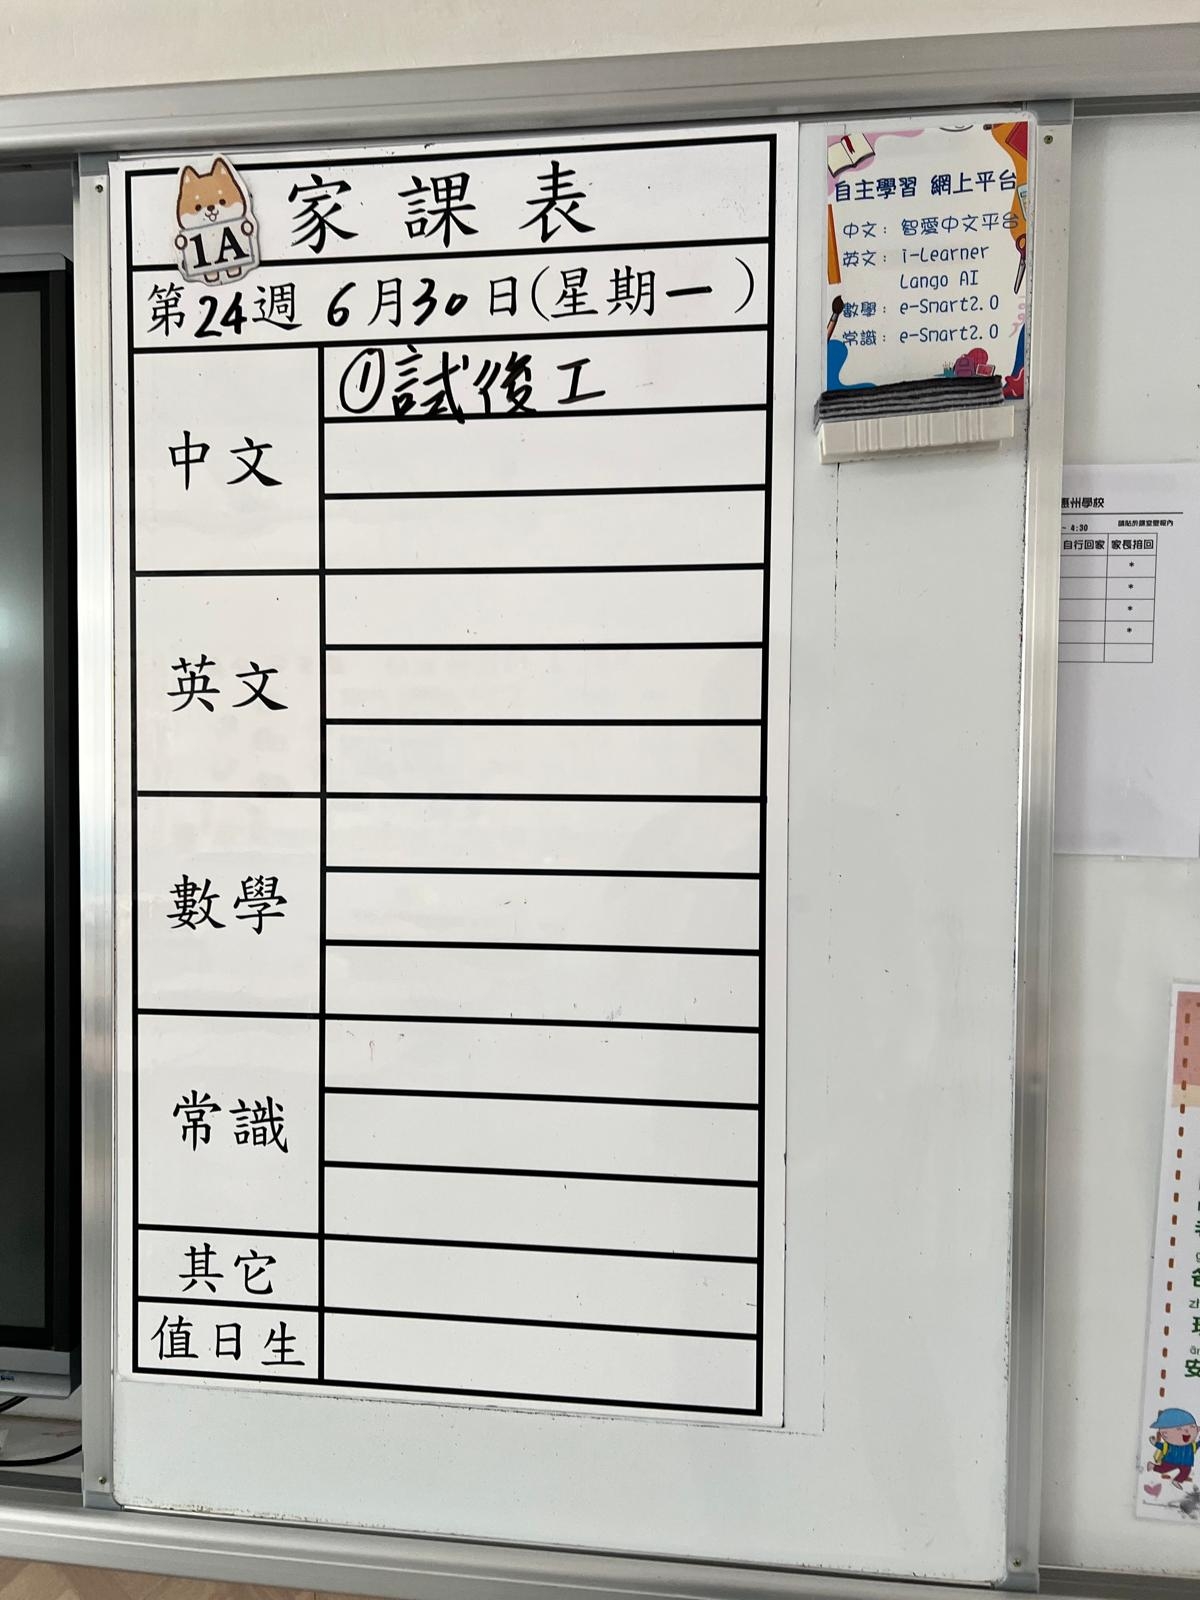 1A
家課表
第24週 6月30日(星期一)
中文
①試後工
英文
數學
常識
其它
值日生
自主學習 網上平台
中文：智愛中文平台
英文：i-Learner
Lango AI
數學：e-Smart2.0
常識：e-Smart2.0
惠州學校
~ 4:30 請貼於課室壁報內
自行回家 家長接回
*
*
*
*
安